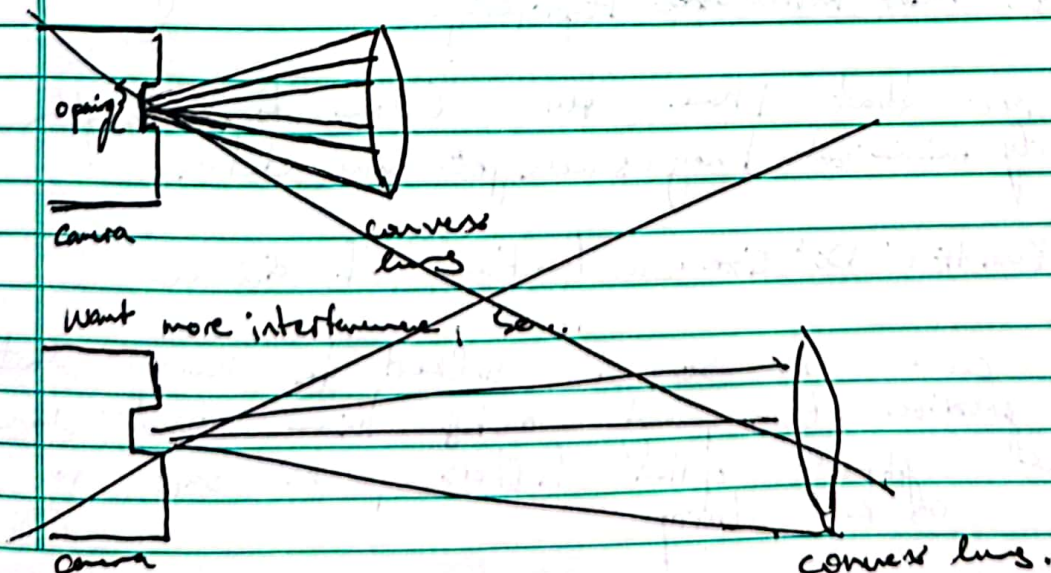 opening
Camera
convess
lens
Want more interference, So..
Camera
convess lens.